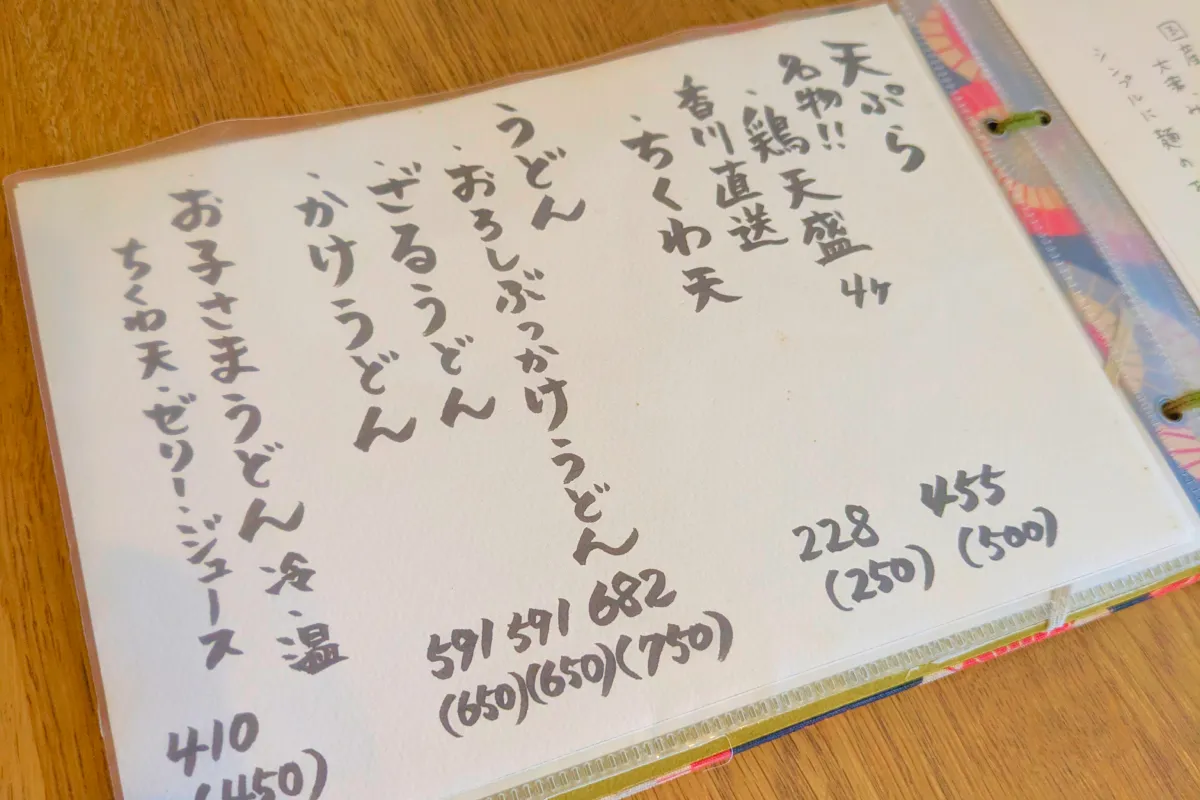 天ぷら
名物!!
・鶏天盛 4ケ 455 (500)
香川直送
・ちくわ天 228 (250)
うどん
・おろしぶっかけうどん 682 (750)
・ざるうどん 591 (650)
・かけうどん 591 (650)
お子さまうどん 冷・温 410 (450)
ちくわ天・ゼリー・ジュース
シンプルに麺の